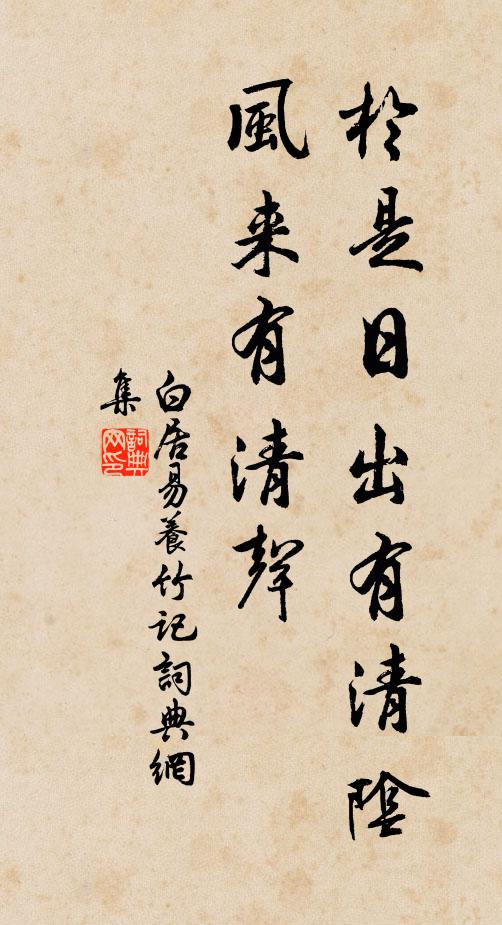 於是日出有清陰
風来有清聲
白居易養竹记詞典網
集
詞典
网印